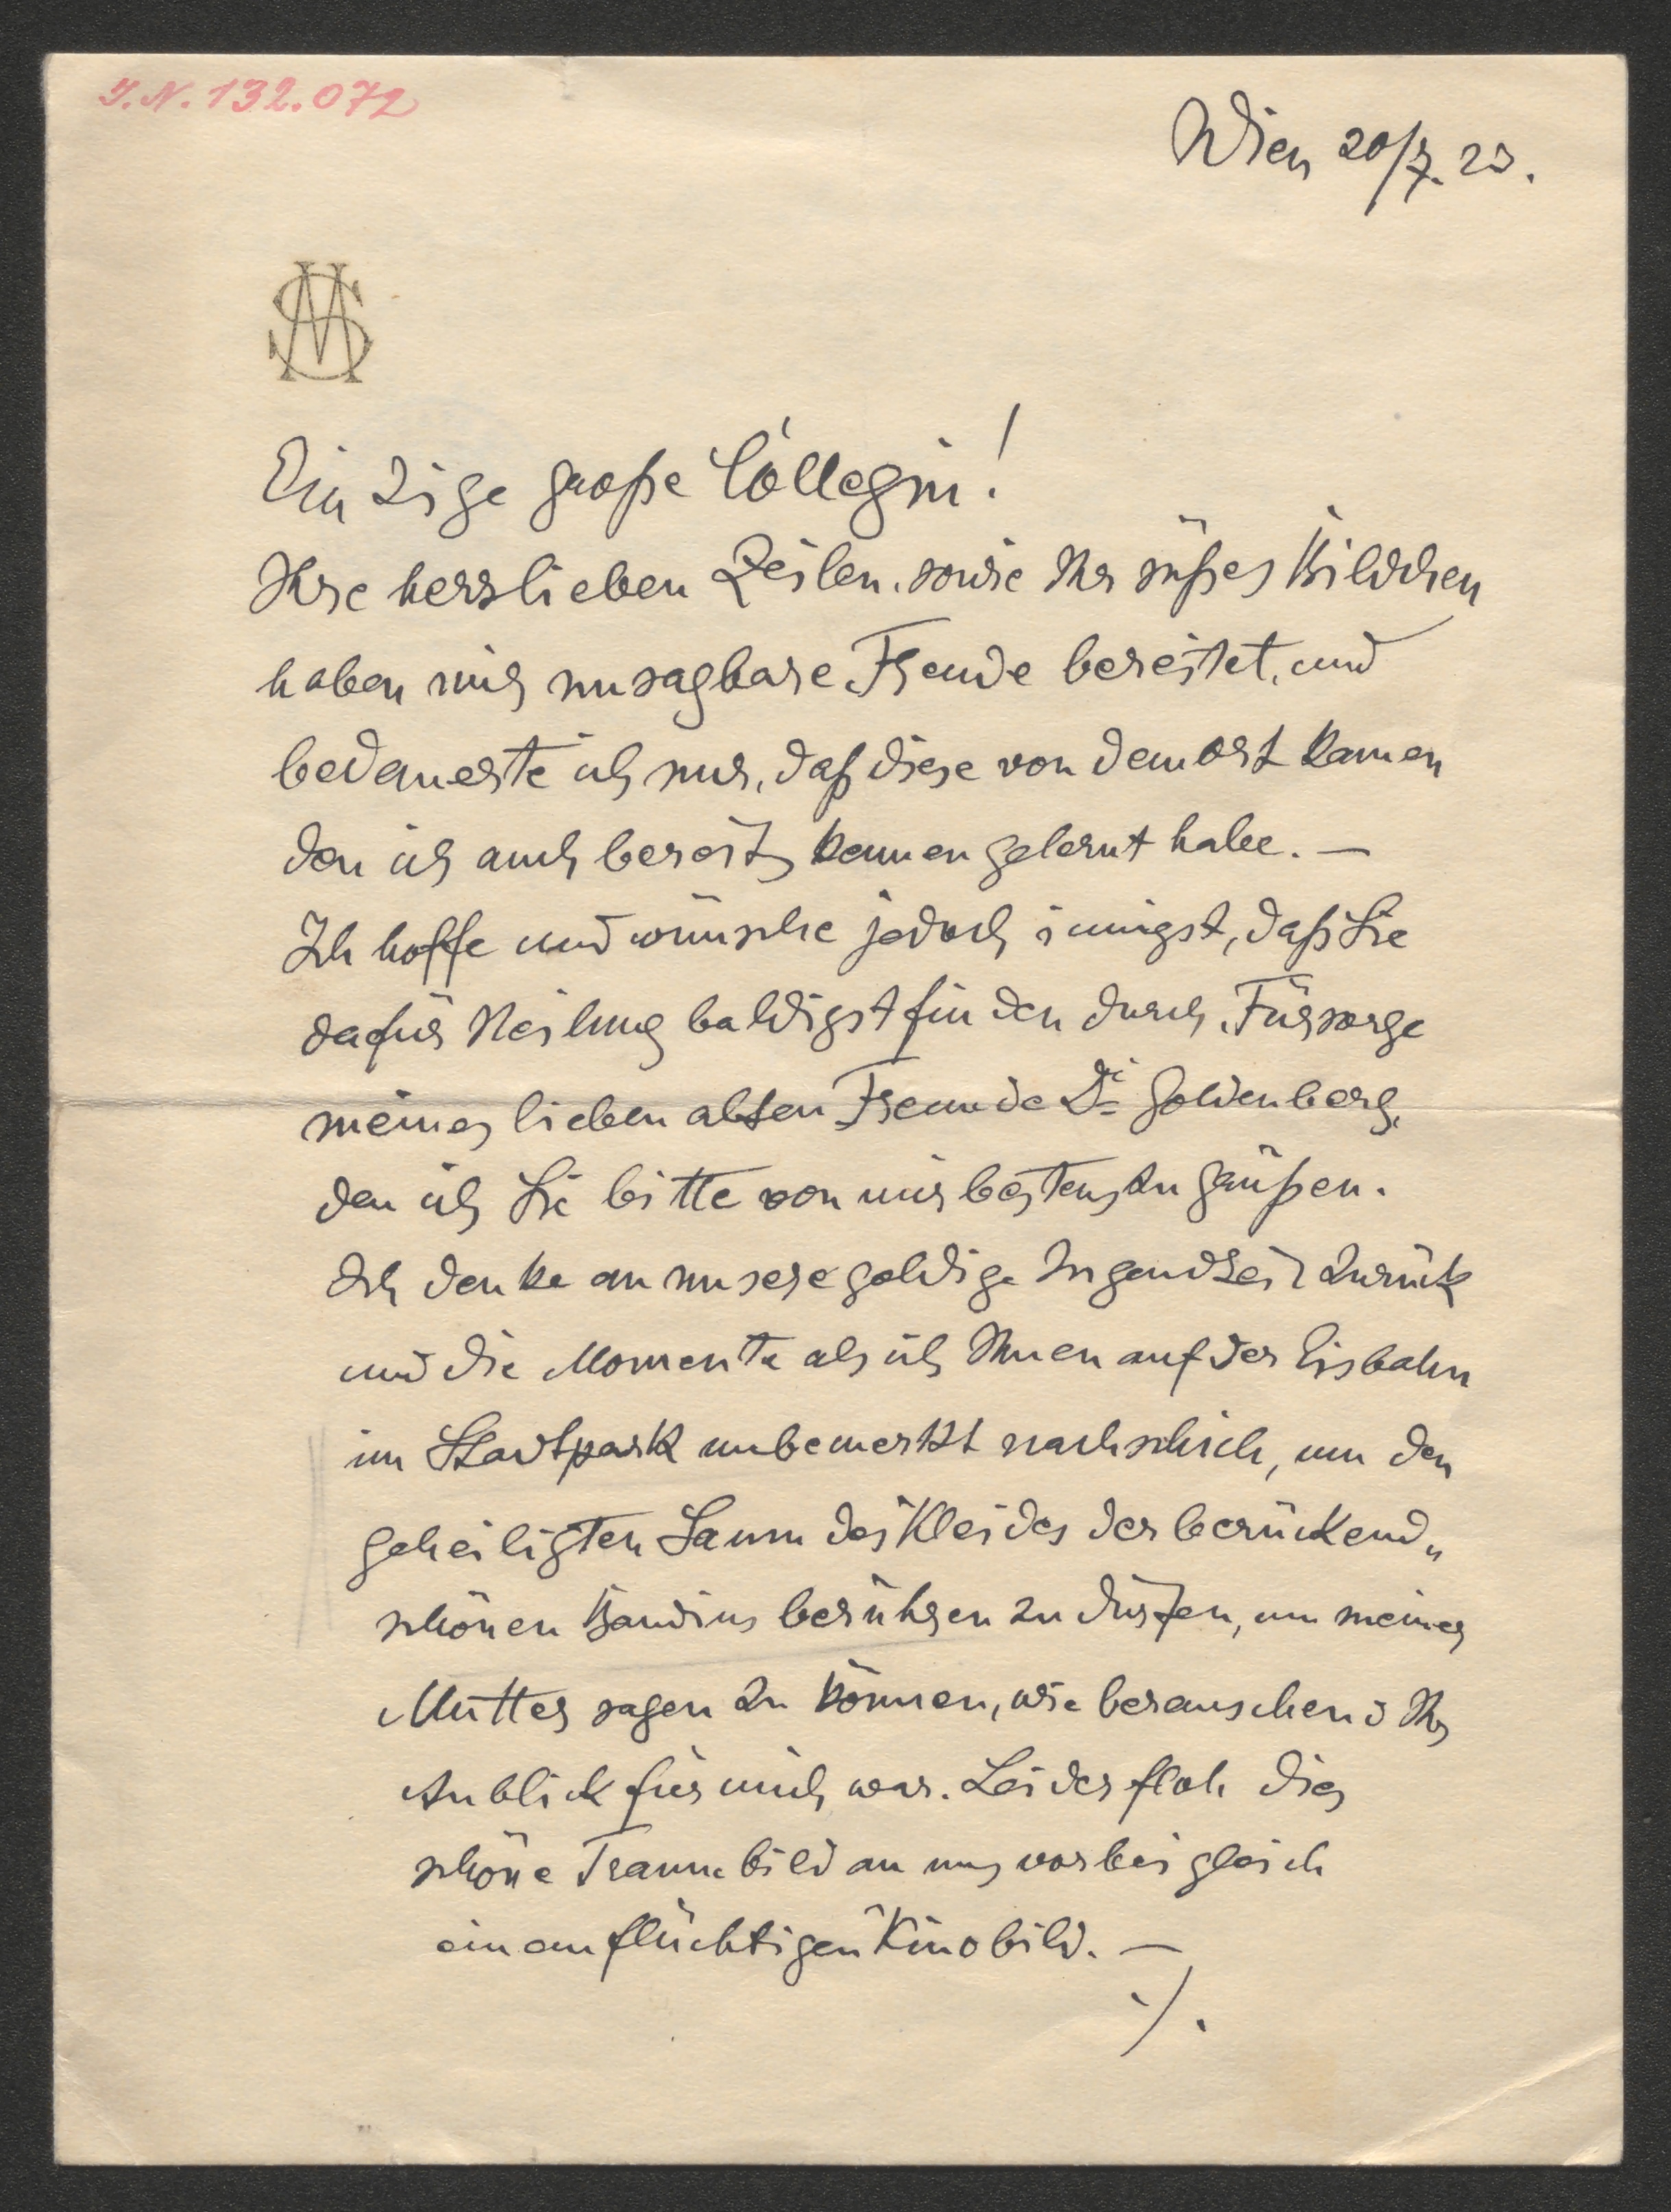 I.N. 132.072
Wien 20/7. 23.
MS
Einzige große Collegin!
Ihre herzlieben Zeilen, sowie Ihr süßes Bildchen
haben mir unsagbare Freude bereitet, und
bedauerte ich nur, daß diese von dem Ort kamen
den ich auch bereits kennen gelernt habe. —
Ich hoffe und wünsche jedoch innigst, daß Sie
dafür Heilung baldigst finden durch Fürsorge
meines lieben alten Freunde Dr Goldenberg,
den ich Sie bitte von mir bestens zu grüßen.
Ich denke an unsere goldige Jugendzeit zurück
und die Momente als ich Ihnen auf der Eisbahn
im Stadtpark unbemerkt nachschlich, um den
geheiligten Saum des Kleides der berückend„
schönen Bandius berühren zu dürfen, um meiner
Mutter sagen zu können, wie berauschend Ihr
Anblick für mich war. Leider floh dies
schöne Traumbild an uns vorbei gleich
einem flüchtigen Kinobild. —
./.